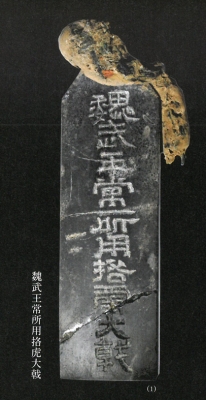 魏武王常所用挌虎大戟
魏武王常所用挌虎大戟
(1)